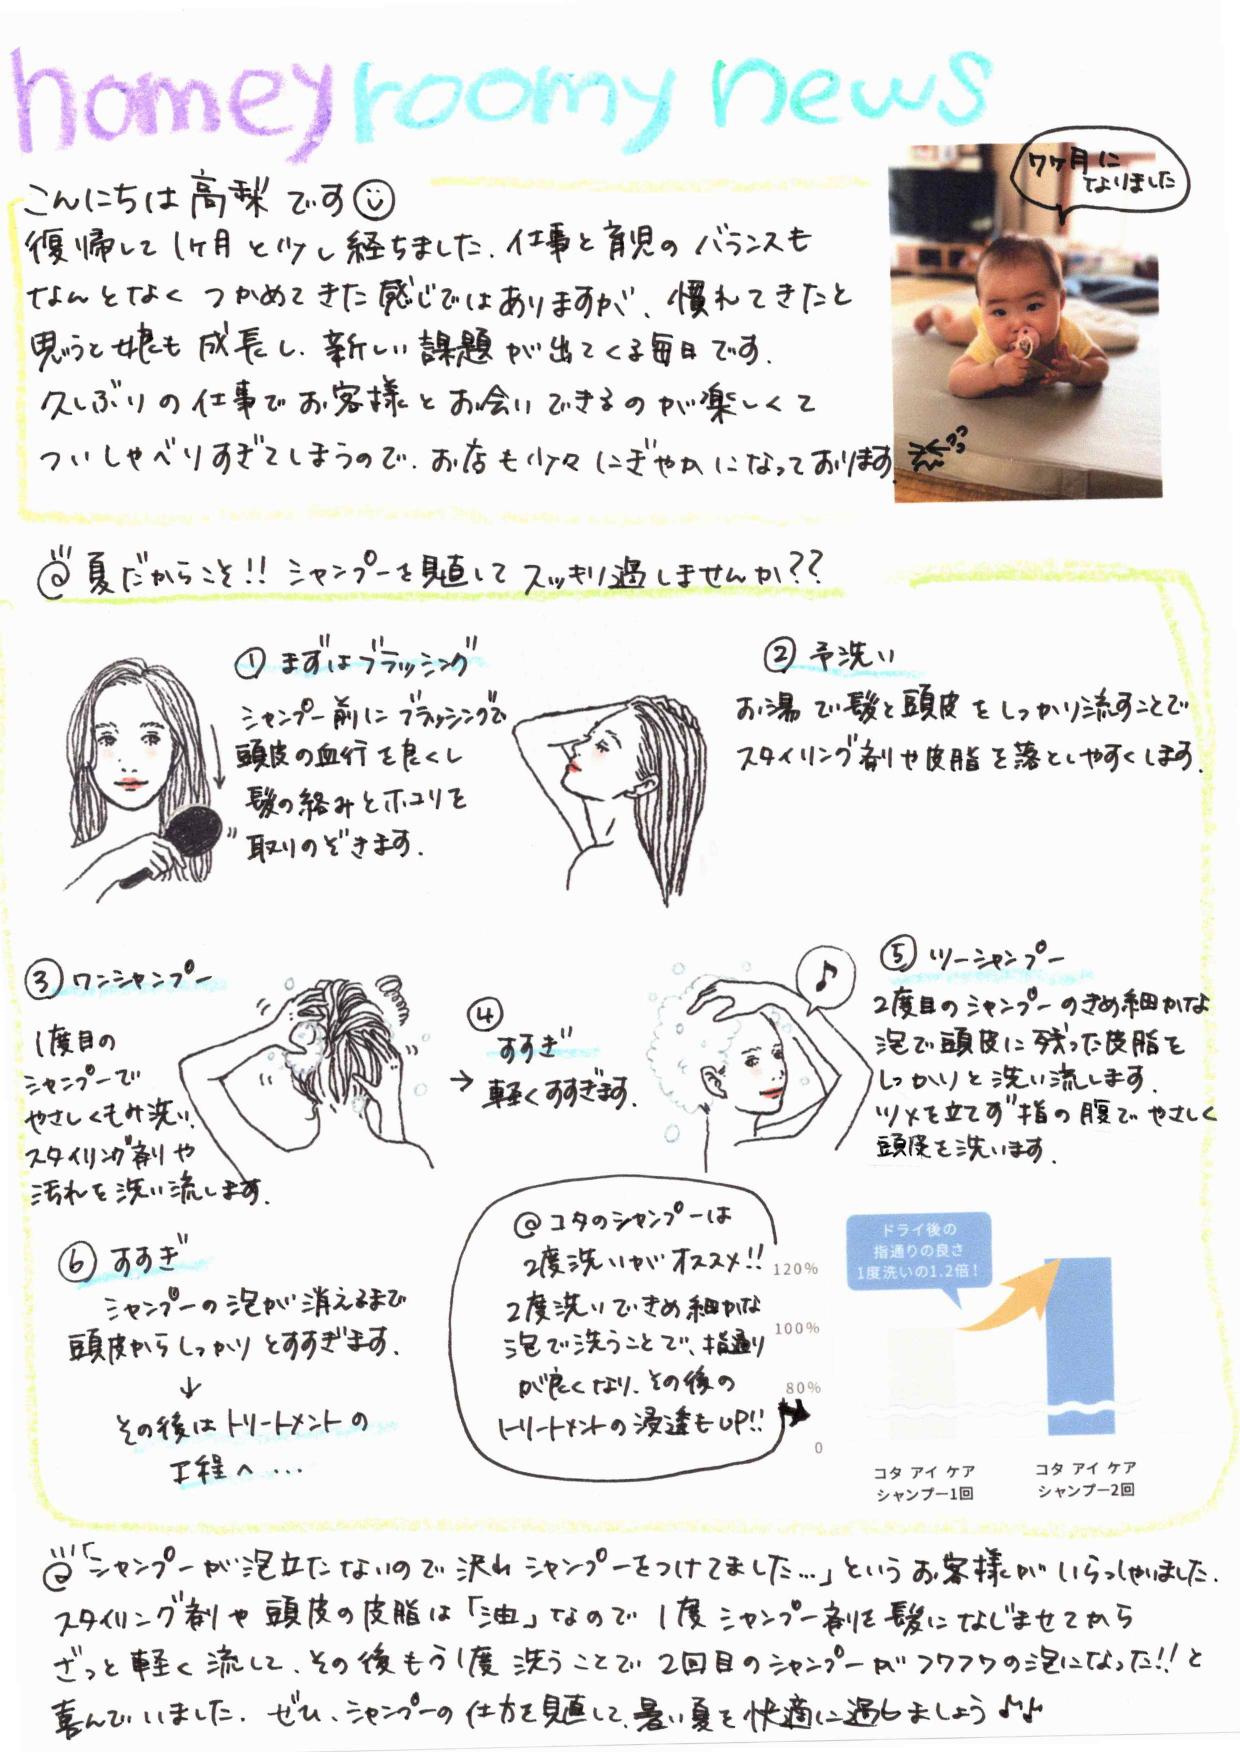 homey roomy news
7ヶ月に
なりました
こんにちは 高梨 です
復帰して 1ヶ月 と少し 経ちました. 仕事と育児の バランスも
なんとなく つかめてきた 感じではありますが、慣れてきたと
思うと娘も 成長し、新しい 課題 が出てくる毎日です.
久しぶりの仕事で お客様と お会いできるのが楽しくて
ついしゃべりすぎてしまうので、お店も少々 にぎやかになっております.
@ 夏だからこそ!! シャンプーを見直して スッキリ過しませんか??
① まずはブラッシング
シャンプー前に ブラッシングで
頭皮の血行を良くし
髪の絡みとホコリを
取りのぞきます.
② 予洗い
お湯で髪と頭皮をしっかり流すことで
スタイリング剤や皮脂を落としやすくします.
③ ワンシャンプー
1度目の
シャンプーで
やさしくもみ洗い、
スタイリング剤や
汚れを洗い流します.
④
すすぎ
→ 軽くすすぎます.
♪
⑤ ツーシャンプー
2度目のシャンプーのきめ細かな
泡で頭皮に残った皮脂を
しっかりと洗い流します.
ツメを立てず指の腹でやさしく
頭皮を洗います.
⑥ すすぎ
シャンプーの泡が消えるまで
頭皮からしっかりとすすぎます.
↓
その後はトリートメントの
工程へ...
@ コタのシャンプーは
2度洗いがオススメ!!
2度洗いできめ細かな
泡で洗うことで、指通り
が良くなり、その後の
トリートメントの浸透もUP!!
ドライ後の
指通りの良さ
1度洗いの1.2倍!
120%
100%
80%
0
コタ アイ ケア
シャンプー1回
コタ アイ ケア
シャンプー2回
@「シャンプーが泡立たないので沢山シャンプーをつけてました...」というお客様がいらっしゃいました.
スタイリング剤や 頭皮の皮脂は「油」なので 1度 シャンプー剤を髪になじませてから
ざっと軽く流して、その後もう1度洗うことで 2回目のシャンプーがフワフワの泡になった!! と
喜んでいました. ぜひ、シャンプーの仕方を見直して、暑い夏を快適に過しましょう♪♪